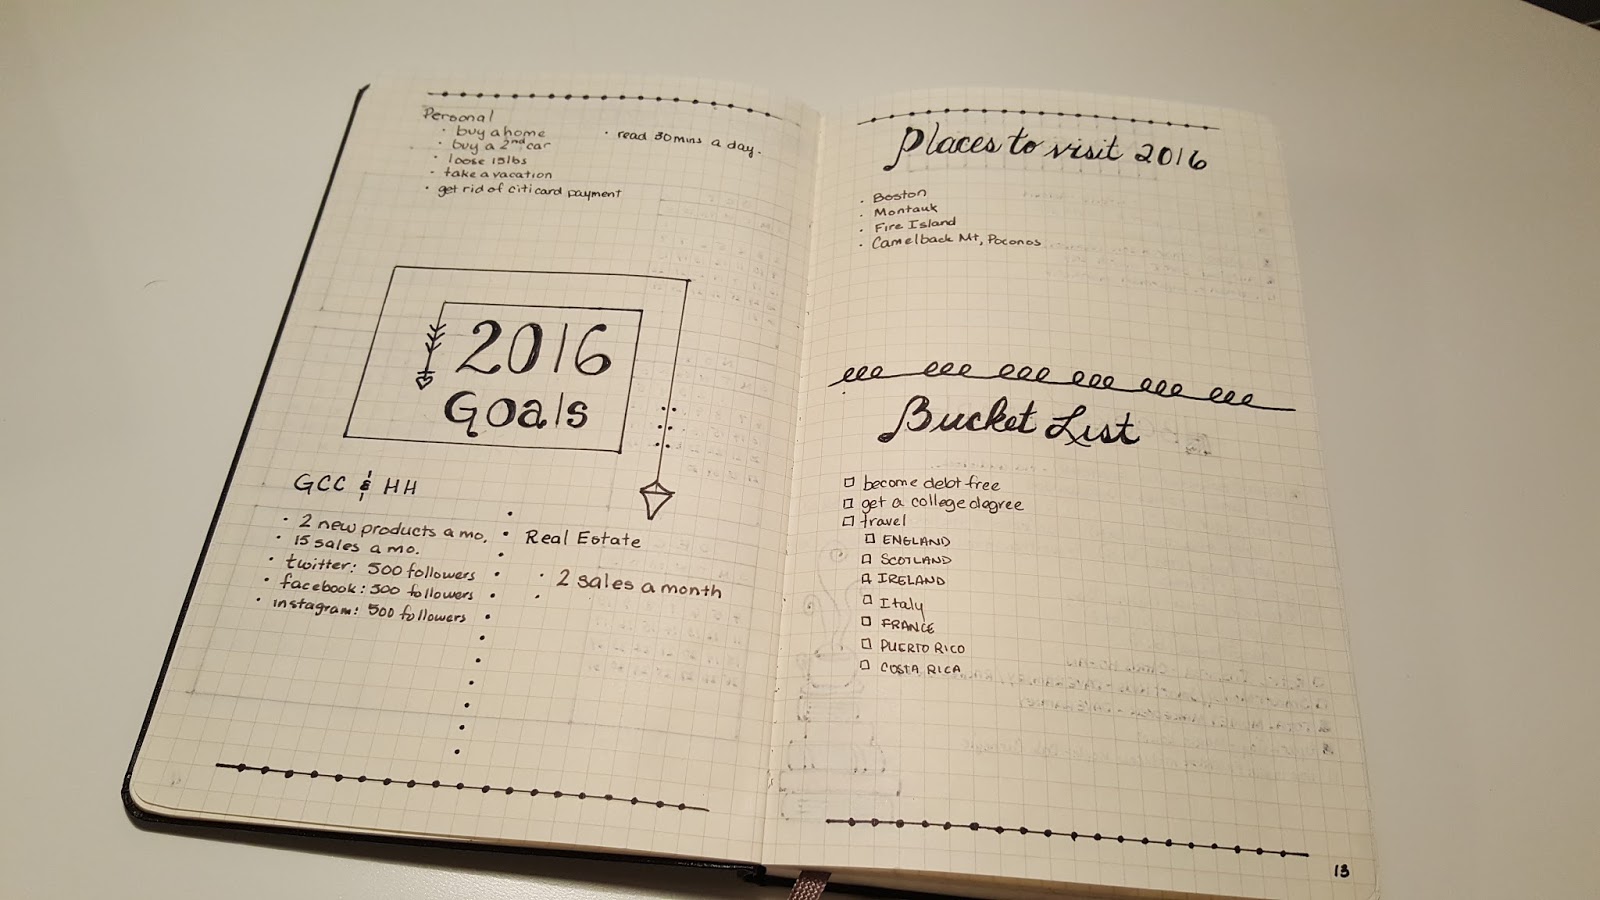 Personal
· buy a home
· buy a 2nd car
· loose 15lbs
· take a vacation
· get rid of citi card payment
· read 30mins a day.
2016
Goals
GCC & HH
· 2 new products a mo.
· 15 sales a mo.
· twitter: 500 followers
· facebook: 500 followers
· instagram: 500 followers
Real Estate
· 2 sales a month
·
Places to visit 2016
· Boston
· Montauk
· Fire Island
· Camelback Mt, Poconos
Bucket List
□ become debt free
□ get a college degree
□ travel
□ ENGLAND
□ SCOTLAND
□ IRELAND
□ Italy
□ FRANCE
□ PUERTO RICO
□ COSTA RICA
13